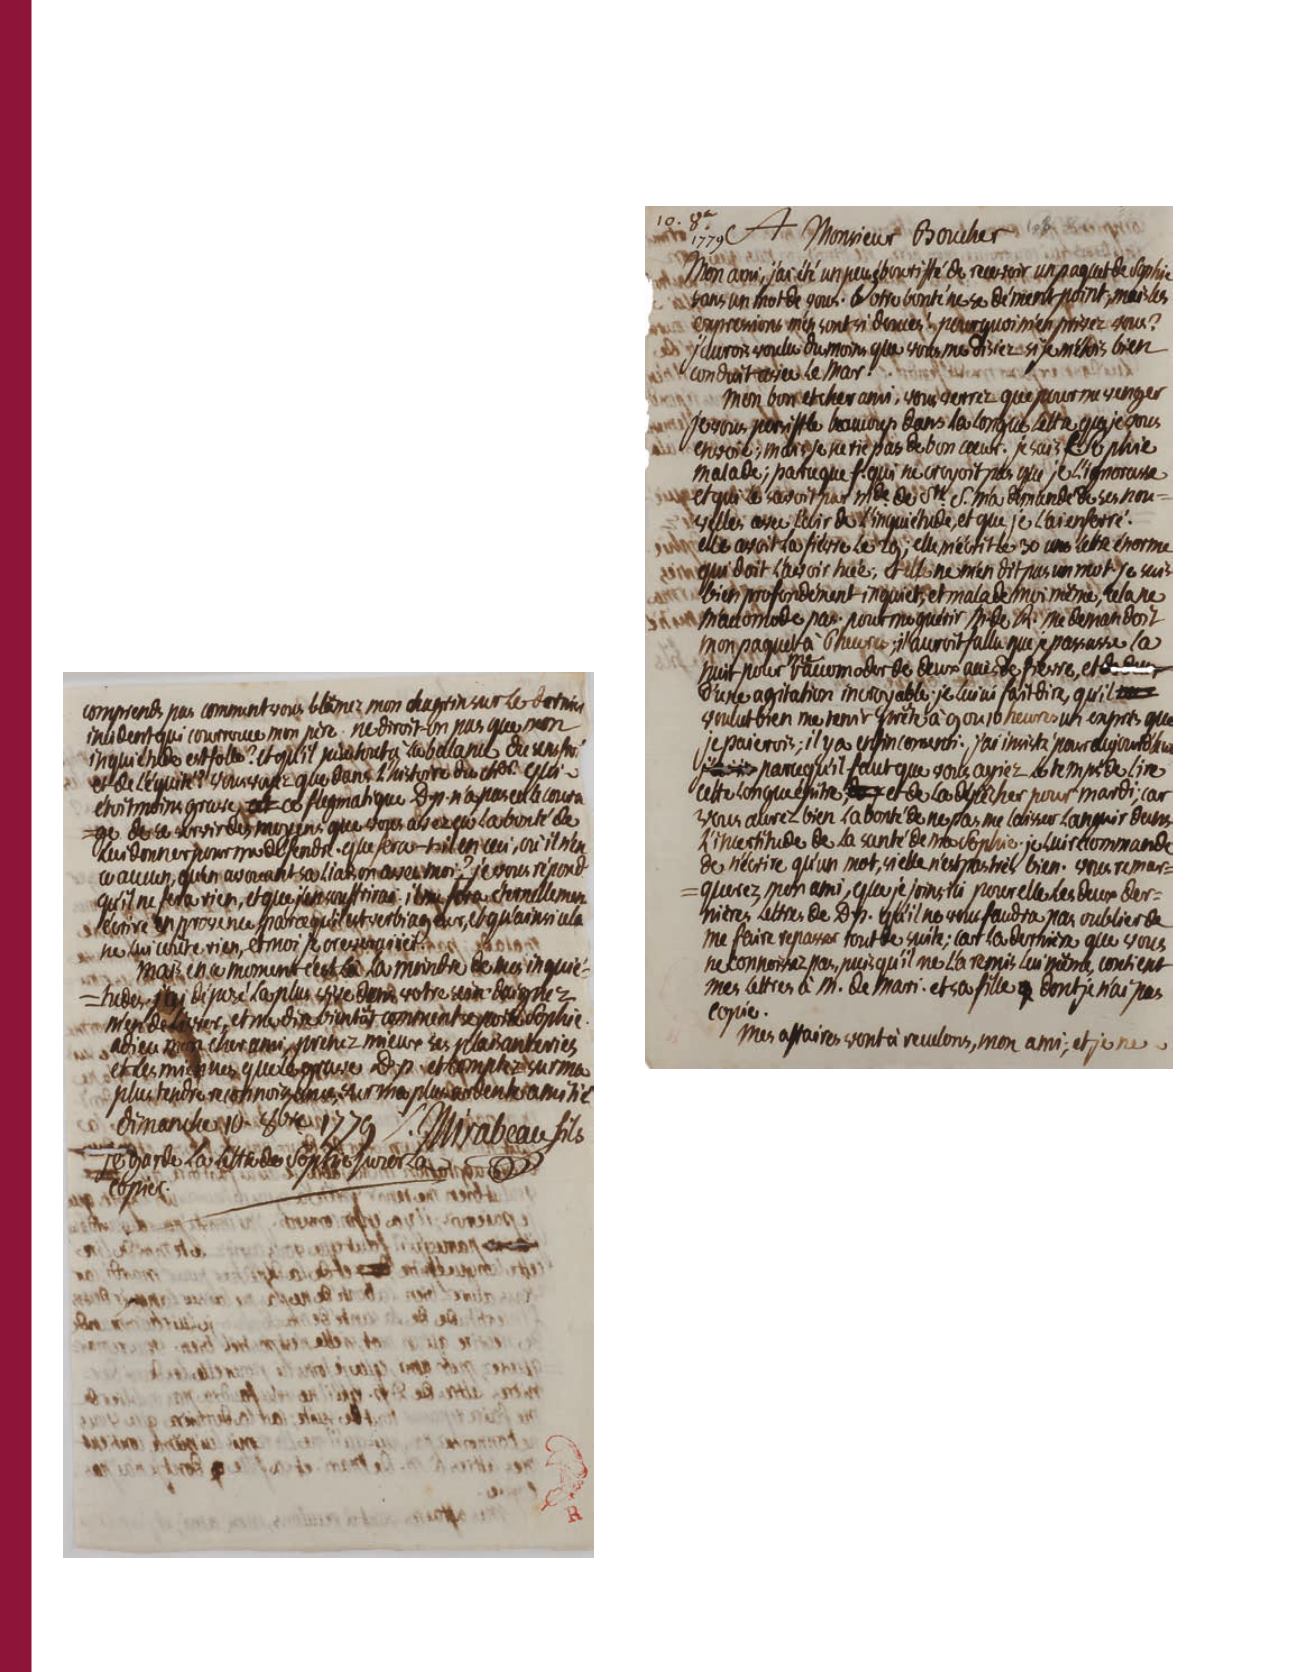 10. 8bre
1779
A Monsieur Boucher
Mon ami, j'ai été un peu ébouriffé de recevoir un paquet de Sophie
sans un mot de vous. Votre bonté ne se dément point, mais les
expressions m'en sont si douces! pourquoi m'en privez vous?
j'aurois voulu du moins que vous me disiez si je m'étois bien
conduit avec le Mar!
Mon bon et cher ami, vous verrez que pour me venger
je vous persiffle beaucoup dans la longue lettre que je vous
envoie; mais je ne ris pas de bon cœur. je sais Sophie
malade; parceque f. qui ne croyoit pas que je l'ignorasse
et qui le savoit par Mde. de Ste. S. m'a demandé de ses nou=
velles avec l'air de l'inquiétude, et que je l'ai enferré.
elle avoit la fièvre le 29; elle m'écrit le 30 une lettre énorme
qui doit l'avoir tuée; et elle ne m'en dit pas un mot. je suis
bien profondément inquiet, et malade moi même, cela ne
m'accomode pas. pour me guérir M. de R. me demandoit
mon paquet à 6 heures; il auroit fallu que je passasse la
nuit pour de deux de fièvre, et
d'une agitation incroyable. je lui ai fait dire, qu'il
voulut bien me tenir prête à 9 ou 10 heures un exprès que
je paierois; il y a enfin consenti. j'ai insisté pour aujourd'hui
parcequ'il faut que vous ayiez le temps de lire
cette longue épitre, et de la dépêcher pour mardi; car
vous aurez bien la bonté de ne pas me laisser languir dans
l'incertitude de la santé de ma Sophie. je lui recommande
de n'écrire qu'un mot, si elle n'est pas très bien. vous remar=
=querez mon ami, que je joins ici pour elle les deux der=
nières lettres de D.p. qu'il ne vous faudra pas oublier de
me faire repasser tout de suite; car la dernière que vous
ne connoissez pas, puisqu'il ne l'a remis lui même, contient
mes lettres à M. de Mari. et sa fille dont je n'ai pas
copie.
Mes affaires vont à reculons, mon ami; et je ne
comprends pas comment vous blâmez mon chagrin sur le dernier
incident qui courrouce mon père. ne diroit-on pas que mon
inquiétude est folle? et qu'il la balance du sens froid
et de l'équité? vous savez que dans l'histoire du qui
étoit moins grave, ce flegmatique D.p. n'a pas eu le coura
=ge de se servir des moyens que vous aviez eu la bonté de
lui donner pour me défendre. que fera-t-il en ceci, où il n'en
a aucun, qu'en avouant sa liaison avec moi? je vous répond
qu'il ne fera rien, et que j'en souffrirai. il me fera éternellement
écrire en provence parcequ'il est verbiageur, et qu'ainsi cela
ne lui coute rien, et moi je creverai ici.
Mais en ce moment c'est là la moindre de mes inquié=
=tudes. j'ai déposé la plus vive dans votre sein. daignez
m'en délivrer, et me dire bientôt comment se porte Sophie.
adieu mon cher ami, prenez mieux ses plaisanteries
et les miennes que le grave D.p. et comptez sur ma
plus tendre reconnoissance, sur ma plus ardente amitié
dimanche 10. 8bre 1779 Mirabeau fils
je garde la lettre de Sophie pour la
copier.
R